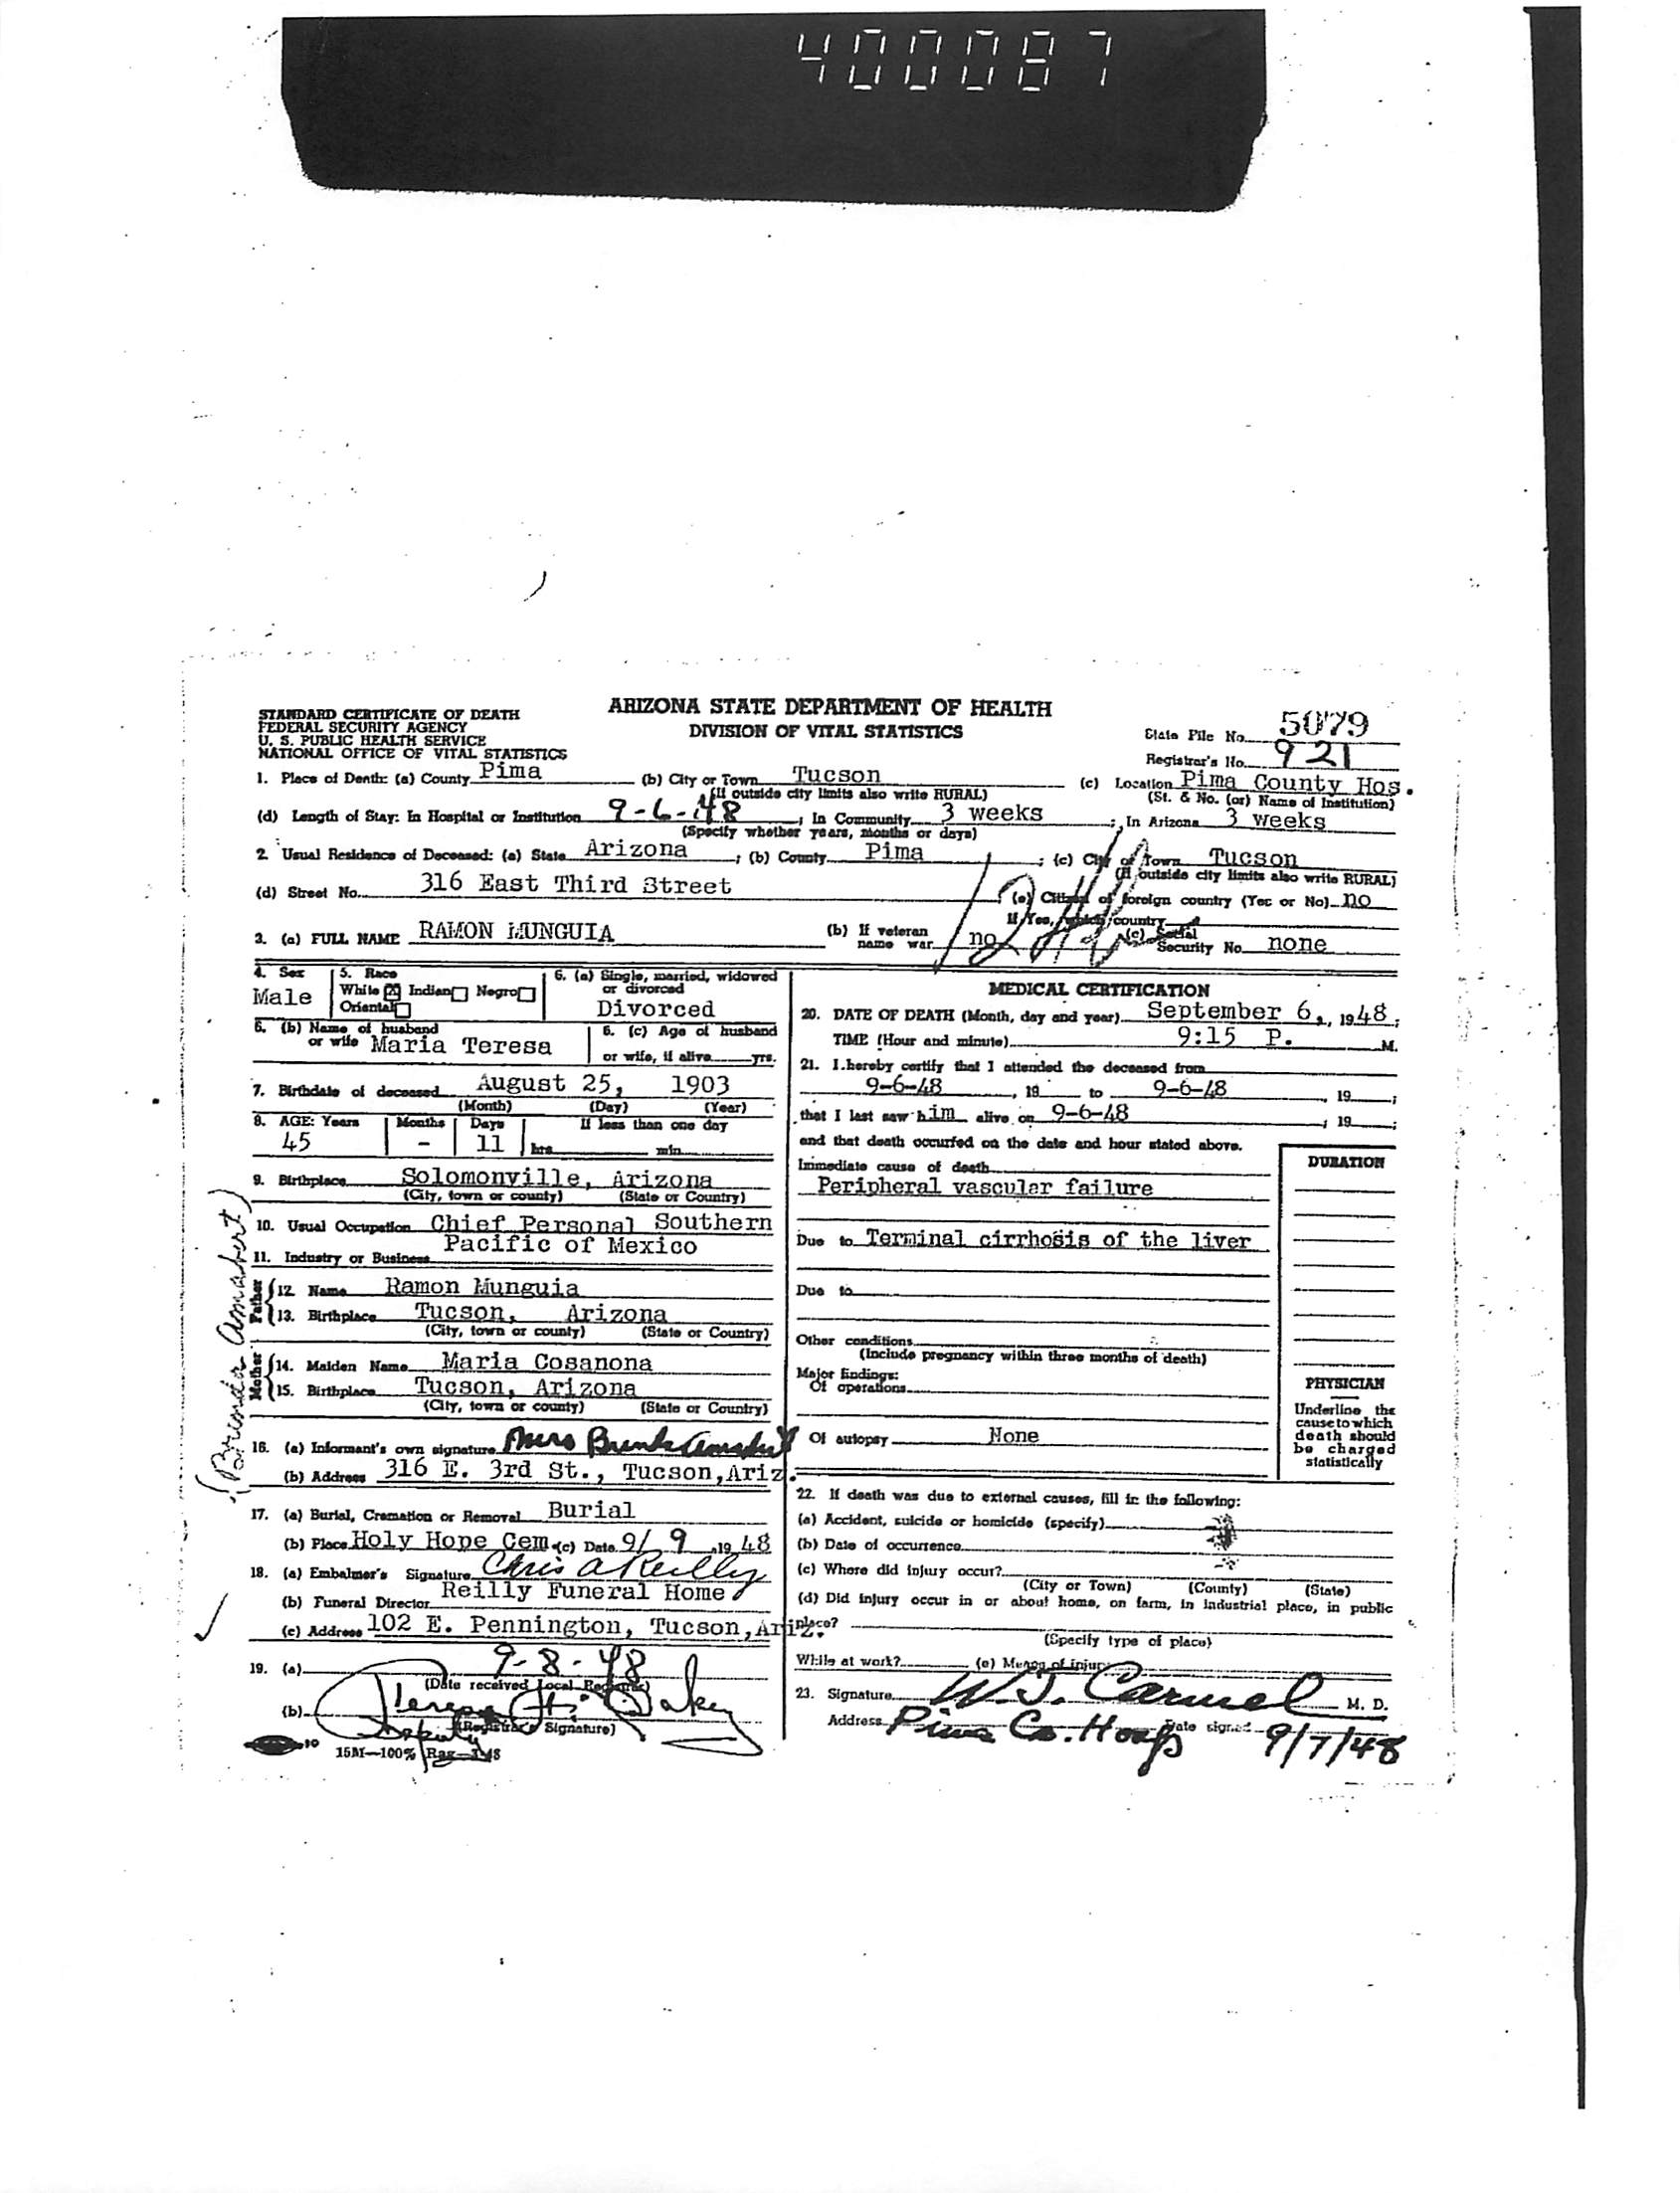 400087
ARIZONA STATE DEPARTMENT OF HEALTH
DIVISION OF VITAL STATISTICS
STANDARD CERTIFICATE OF DEATH
FEDERAL SECURITY AGENCY
U. S. PUBLIC HEALTH SERVICE
NATIONAL OFFICE OF VITAL STATISTICS
State File No. 5079
Registrar's No. 921
1. Place of Death: (a) County Pima (b) City or Town Tucson (c) Location Pima County Hos.
(If outside city limits also write RURAL) (St. & No. (or) Name of Institution)
(d) Length of Stay: In Hospital or Institution 9-6-48, In Community 3 weeks; In Arizona 3 weeks
(Specify whether years, months or days)
2. Usual Residence of Deceased: (a) State Arizona; (b) County Pima; (c) City or Town Tucson
(If outside city limits also write RURAL)
(d) Street No. 316 East Third Street (e) Citizen of foreign country (Yes or No) no
If Yes, which country
3. (a) FULL NAME RAMON MUNGUIA (b) If veteran name war no (c) Social Security No. none
4. Sex Male
5. Race White [X] Indian Negro Oriental
6. (a) Single, married, widowed or divorced Divorced
6. (b) Name of husband or wife Maria Teresa
6. (c) Age of husband or wife, if alive yrs.
7. Birthdate of deceased August 25, 1903
(Month) (Day) (Year)
8. AGE: Years 45 Months - Days 11 If less than one day hrs. min.
9. Birthplace Solomonville, Arizona
(City, town or county) (State or Country)
10. Usual Occupation Chief Personal Southern
Pacific of Mexico
11. Industry or Business
Father
12. Name Ramon Munguia
13. Birthplace Tucson, Arizona
(City, town or county) (State or Country)
Mother
14. Maiden Name Maria Cosanona
15. Birthplace Tucson, Arizona
(City, town or county) (State or Country)
16. (a) Informant's own signature Mrs
(b) Address 316 E. 3rd St., Tucson, Ariz.
17. (a) Burial, Cremation or Removal Burial
(b) Place Holy Hope Cem. (c) Date 9/9, 1948
18. (a) Embalmer's Signature Chris A Reilly
(b) Funeral Director Reilly Funeral Home
(c) Address 102 E. Pennington, Tucson, Ariz.
19. (a) 9-8-48
(Date received Local Registrar)
(b) Deputy
(Registrar's Signature)
15M—100% Rag
MEDICAL CERTIFICATION
20. DATE OF DEATH (Month, day and year) September 6, 1948;
TIME (Hour and minute) 9:15 P. M.
21. I hereby certify that I attended the deceased from
9-6-48, 19 to 9-6-48, 19;
that I last saw him alive on 9-6-48; 19;
and that death occurred on the date and hour stated above.
DURATION
Immediate cause of death
Peripheral vascular failure
Due to Terminal cirrhosis of the liver
Due to
Other conditions
(Include pregnancy within three months of death)
Major findings:
Of operations
Of autopsy None
PHYSICIAN
Underline the
cause to which
death should
be charged
statistically
22. If death was due to external causes, fill in the following:
(a) Accident, suicide or homicide (specify)
(b) Date of occurrence
(c) Where did injury occur?
(City or Town) (County) (State)
(d) Did injury occur in or about home, on farm, in industrial place, in public
place?
(Specify type of place)
While at work? (e) Means of injury
23. Signature W. J. Carmel M. D.
Address Pima Co. Hosp Date signed 9/7/48